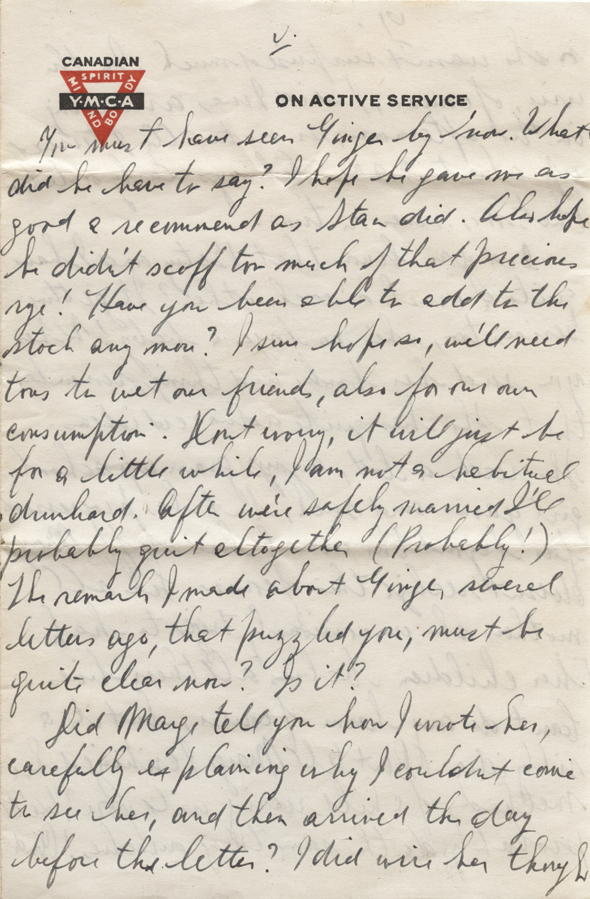 V.
CANADIAN
SPIRIT
MIND
BODY
Y·M·C·A
ON ACTIVE SERVICE
You must have seen Ginger by now. What
did he have to say? I hope he gave me as
good a recommend as Stan did. Also hope
he didn't scoff too much of that precious
rye! Have you been able to add to the
stock any more? I sure hope so, we'll need
tons to wet our friends, also for our own
consumption. Dont worry, it will just be
for a little while, I am not a habitual
drunkard. After we're safely married I'll
probably quit altogether (Probably!)
The remark I made about Ginger, several
letters ago, that puzzled you, must be
quite clear now? Is it?
Did Marge tell you how I wrote her,
carefully explaining why I couldn't come
to see her, and then arrived the day
before the letter? I did wire her though